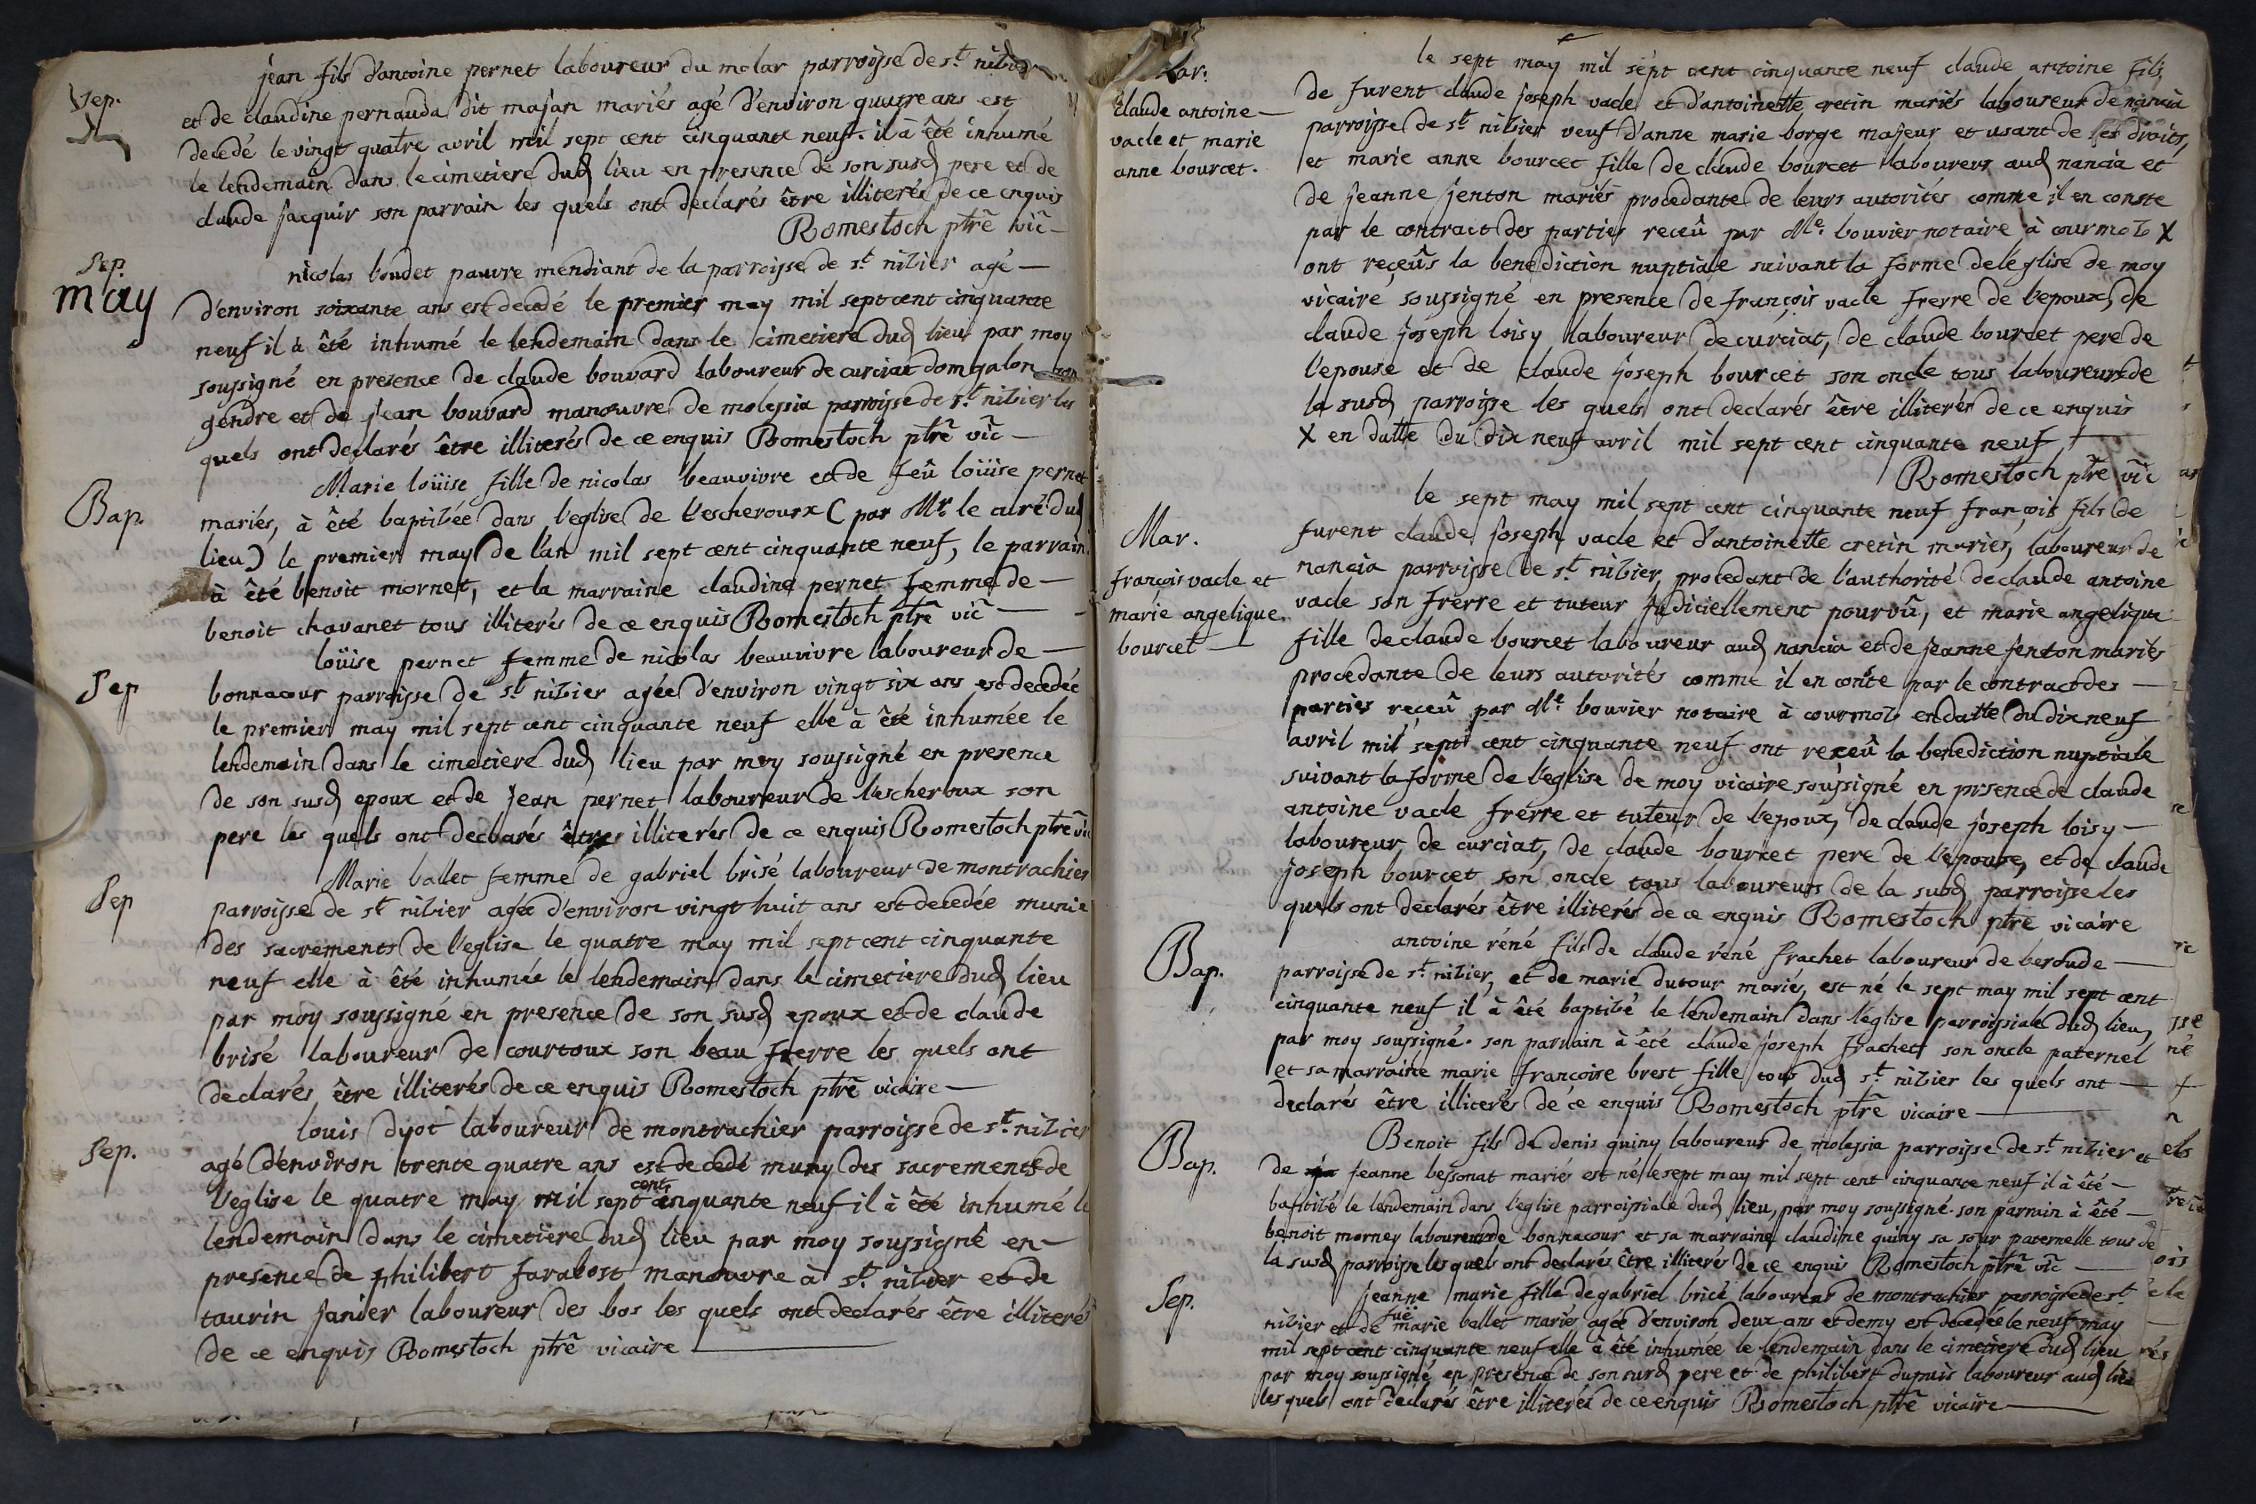 Sep.
jean fils d'antoine pernet laboureur du molar parroisse de st. nizier
et de claudine pernauda dit majan mariés agé d'environ quatre ans est
decedé le vingt quatre avril mil sept cent cinquante neuf. il à êté inhumé
le lendemain dans le cimetiere dud lieu en presence de son susd pere et de
claude jacquir son parrain les quels ont declarés être illiterés de ce enquis
Romestoch ptrẽ vic̃
Sep.
may
nicolas boudet pauvre mendiant de la parroisse de st. nizier agé
d'environ soixante ans est decedé le premier may mil sept cent cinquante
neuf il à êté inhumé le lendemain dans le cimetiere dud lieu par moy
soussigné en presence de claude bouvard laboureur de curciat domgalon son
gendre et de jean bouvard manœuvre de molessia parroisse de st. nizier les
quels ont declarés être illiterés de ce enquis Romestoch ptrẽ vic̃
Bap.
Marie loüise fille de nicolas beauvivre et de feû loüise pernet
mariés, à êté baptizée dans l'eglise de l'escheroux ( par Mr. le curé dud
lieu ) le premier may de l'an mil sept cent cinquante neuf, le parrain
à êté benoit mornet, et la marraine claudine pernet femme de
benoit chavanet tous illiterés de ce enquis Romestoch ptrẽ vic̃
Sep
loüise pernet femme de nicolas beauvivre laboureur de
bonnacour parroisse de st nizier agée d'environ vingt six ans est decedée
le premier may mil sept cent cinquante neuf elle à êté inhumée le
lendemain dans le cimetiere dud lieu par moy soussigné en presence
de son susd epoux et de jean pernet laboureur de l'escheroux son
pere les quels ont declarés êtres illiterés de ce enquis Romestoch ptrẽ vic
Sep
Marie ballet femme de gabriel brisé laboureur de montrachier
parroisse de st nizier agée d'environ vingt huit ans est decedée munie
des sacrements de l'eglise le quatre may mil sept cent cinquante
neuf elle à êté inhumée le lendemain dans le cimetiere dud lieu
par moy soussigné en presence de son susd epoux et de claude
brisé laboureur de courtoux son beau frerre les quels ont
declarés être illiterés de ce enquis Romestoch ptrẽ vicaire
Sep.
louis dyot laboureur de montrachier parroisse de st. nizier
agé d'environ trente quatre ans est decedé muny des sacrements de
l'eglise le quatre may mil sept cent cinquante neuf il à êté inhumé le
lendemain dans le cimetiere dud lieu par moy soussigné en
presence de philibert farabost manœuvre à st. nizier et de
taurin janier laboureur des bos les quels ont declarés être illiterés
de ce enquis Romestoch ptrẽ vicaire
Mar.
claude antoine
vacle et marie
anne bourcet.
le sept may mil sept cent cinquante neuf claude antoine fils
de furent claude joseph vacle et d'antoinette cretin mariés laboureur de nancia
parroisse de st. nizier veuf d'anne marie borge majeur et usant de ses droits,
et marie anne bourcet fille de claude bourcet laboureur aud nancia et
de jeanne jenton mariés procedante de leurs autorités comme il en conste
par le contract des parties receû par Me. bouvier notaire à courmoz X
ont reçeûs la benediction nuptiale suivant la forme de l'eglise de moy
vicaire soussigné en presence de françois vacle frerre de l'epoux, de
claude joseph loisy laboureur de curciat, de claude bourcet pere de
l'epouse et de claude joseph bourcet son oncle tous laboureurs de
la susd parroisse les quels ont declarés être illiterés de ce enquis
X en datte du dix neuf avril mil sept cent cinquante neuf
Romestoch ptrẽ vic̃
Mar.
françois vacle et
marie angelique
bourcet
le sept may mil sept cent cinquante neuf françois fils de
furent claude joseph vacle et d'antoinette cretin mariés, laboureur de
nancia parroisse de st. nizier, procedant de l'authorité de claude antoine
vacle son frerre et tuteur judiciellement pourvû, et marie angelique
fille de claude bourcet laboureur aud nancia et de jeanne jenton mariés
procedante de leurs autorités comme il en conste par le contract des
parties reçeû par Me. bouvier notaire à courmoz en datte du dix neuf
avril mil sept cent cinquante neuf ont reçeû la benediction nuptiale
suivant la forme de l'eglise de moy vicaire soussigné en prsence de claude
antoine vacle frerre et tuteur de l'epoux, de claude joseph loisy
laboureur de curciat, de claude bourcet pere de l'epouse, et de claude
joseph bourcet son oncle tous laboureurs de la susd parroisse les
quels ont declarés être illiterés de ce enquis Romestoch ptrẽ vicaire
Bap.
antoine réné fils de claude réné frachet laboureur de beroude
parroisse de st. nizier, et de marie dutour mariés, est né le sept may mil sept cent
cinquante neuf il à êté baptizé le lendemain dans l'eglise parroissiale dud lieu
par moy soussigné. son parrain à êté claude joseph frachet son oncle paternel
et sa marraine marie francoise brest fille tous dud st. nizier les quels ont
declarés être illiterés de ce enquis Romestoch ptrẽ vicaire
Bap.
Benoit fils de denis quiny laboureur de molessia parroisse de st. nizier et
de jeanne bessonat mariés est né le sept may mil sept cent cinquante neuf il à êté
baptizé le lendemain dans l'eglise parroissiale dud lieu, par moy soussigné. son parrain à êté
benoit morney laboureur de bonnacour et sa marraine claudine quiny sa sœur paternelle tous de
la susd parroisse les quels ont declarés être illiterés de ce enquis Romestoch ptrẽ vic̃
Sep.
jeanne marie fille de gabriel bricé laboureur de montrachier parroisse de st.
nizier et de fuë marie ballet mariés agée d'environ deux ans et demy est decedée le neuf may
mil sept cent cinquante neuf elle à êté inhumée le lendemain dans le cimetiere dud lieu
par moy soussigné en presence de son susd pere et de philibert dupuis laboureur aud lieu
les quels ont declarés être illiterés de ce enquis Romestoch ptrẽ vicaire